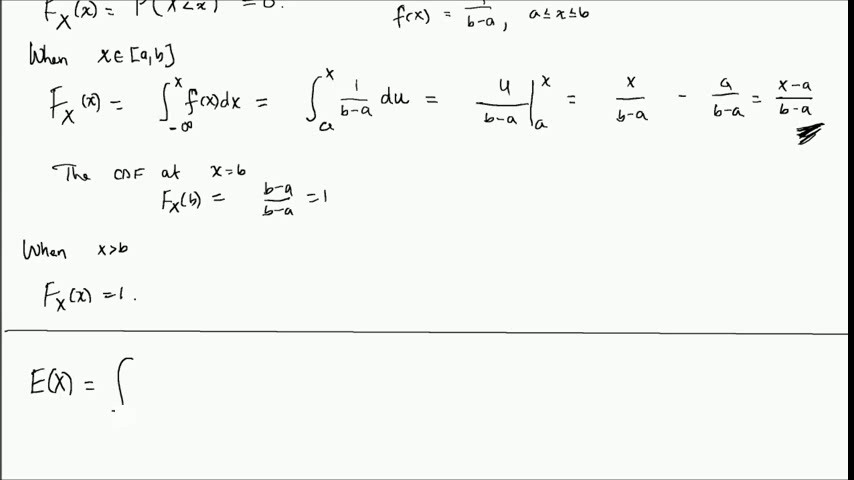 F_X(x) = P(X<x) = 0.
f(x) = 1/(b-a), a≤x≤b
When x∈[a,b]
F_X(x) = ∫_{-∞}^{x} f(x)dx = ∫_{a}^{x} 1/(b-a) du = u/(b-a) |_{a}^{x} = x/(b-a) - a/(b-a) = (x-a)/(b-a)
The CDF at x=b
F_X(b) = (b-a)/(b-a) = 1
When x>b
F_X(x) = 1.
E(X) = ∫